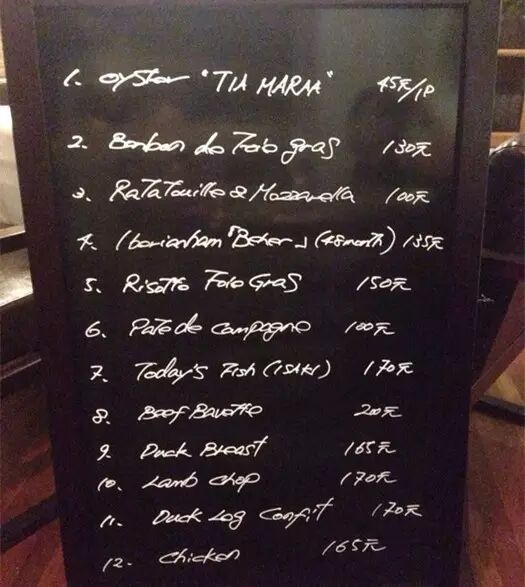 1. oyster "TIA MARAA" 45元/1P
2. Bonbon de Foie gras 130元
3. Ratatouille & Mozzarella 100元
4. Iberianham「Beher」(48month) 135元
5. Risotto Foie Gras 150元
6. Pate de campagne 100元
7. Today's Fish (ISAKI) 170元
8. Beef Bavette 200元
9. Duck Breast 165元
10. Lamb chop 170元
11. Duck Leg Confit 170元
12. Chicken 165元